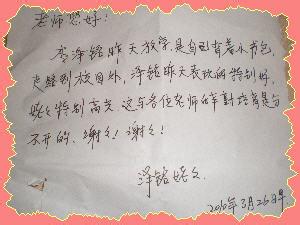 老师您好:
李泽铭昨天放学是自己背着小书包
走到校门外,泽铭昨天表现的特别好,
姥姥特别高兴 这与各位老师的辛勤培育是分
不开的,谢谢!谢谢!
泽铭姥姥
2010年3月26日早